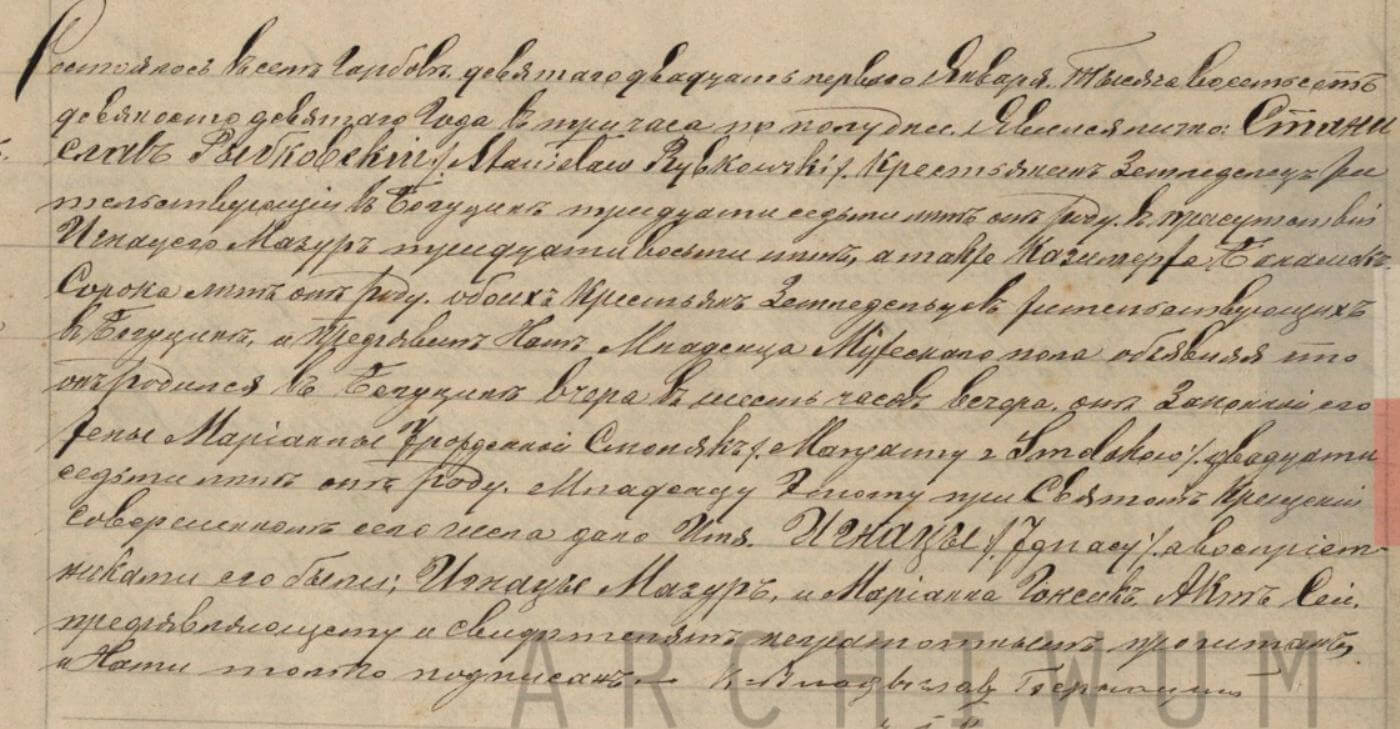 Состоялось въ селѣ Гарбовѣ девятаго двадцать перваго Января Тысяча восемьсотъ
девяносто девятаго Года въ три часа по полудни. Явился лично: Стани
славъ Рыбковскій /Stanislaw Rybkowski/. Крестьянинъ Земледелецъ жи
тельствующій въ Богуцинѣ тридцати седьми лѣтъ отъ роду. въ присутствіи
Игнацего Мазуръ тридцати восьми лѣтъ, а также Казимержа
Сорока лѣтъ отъ роду. обоихъ Крестьянъ Земледельцовъ жительствующихъ
въ Богуцинѣ, и предъявилъ Намъ Младенца Мужескаго пола объявляя что
онъ родился въ Богуцинѣ вчера въ шесть часовъ вечера. отъ Законной его
жены Маріанны Урожденной Смолякъ /. Maryanny z Smolakow /. двадцати
седьми лѣтъ отъ роду. Младенцу Этому при Святомъ Крещеніи
совершенномъ сего числа дано Имя. Игнацы /. Ignacy /. а воспріем-
никами его были; Игнацы Мазуръ, и Маріанна Актъ Сей,
предъявляющему и свидѣтелямъ неграмотнымъ прочитанъ,
и Нами только подписанъ.— К. Владыславъ
ARCHIWUM